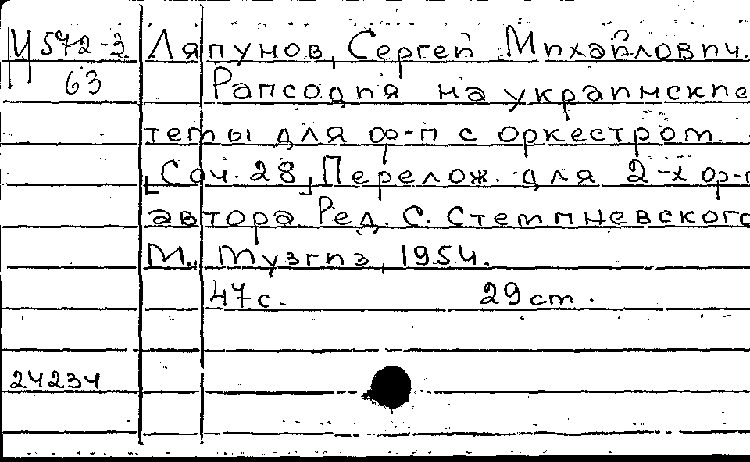 Ц 572-3
63
Ляпунов, Сергей Михайлович.
Рапсодия на украинские
темы для ф-п с оркестром
[Соч. 28] Перелож. для 2-х ф-п
автора. Ред. С. Стемпневского
М., Музгиз, 1954.
47 с. 29 cm.
24234